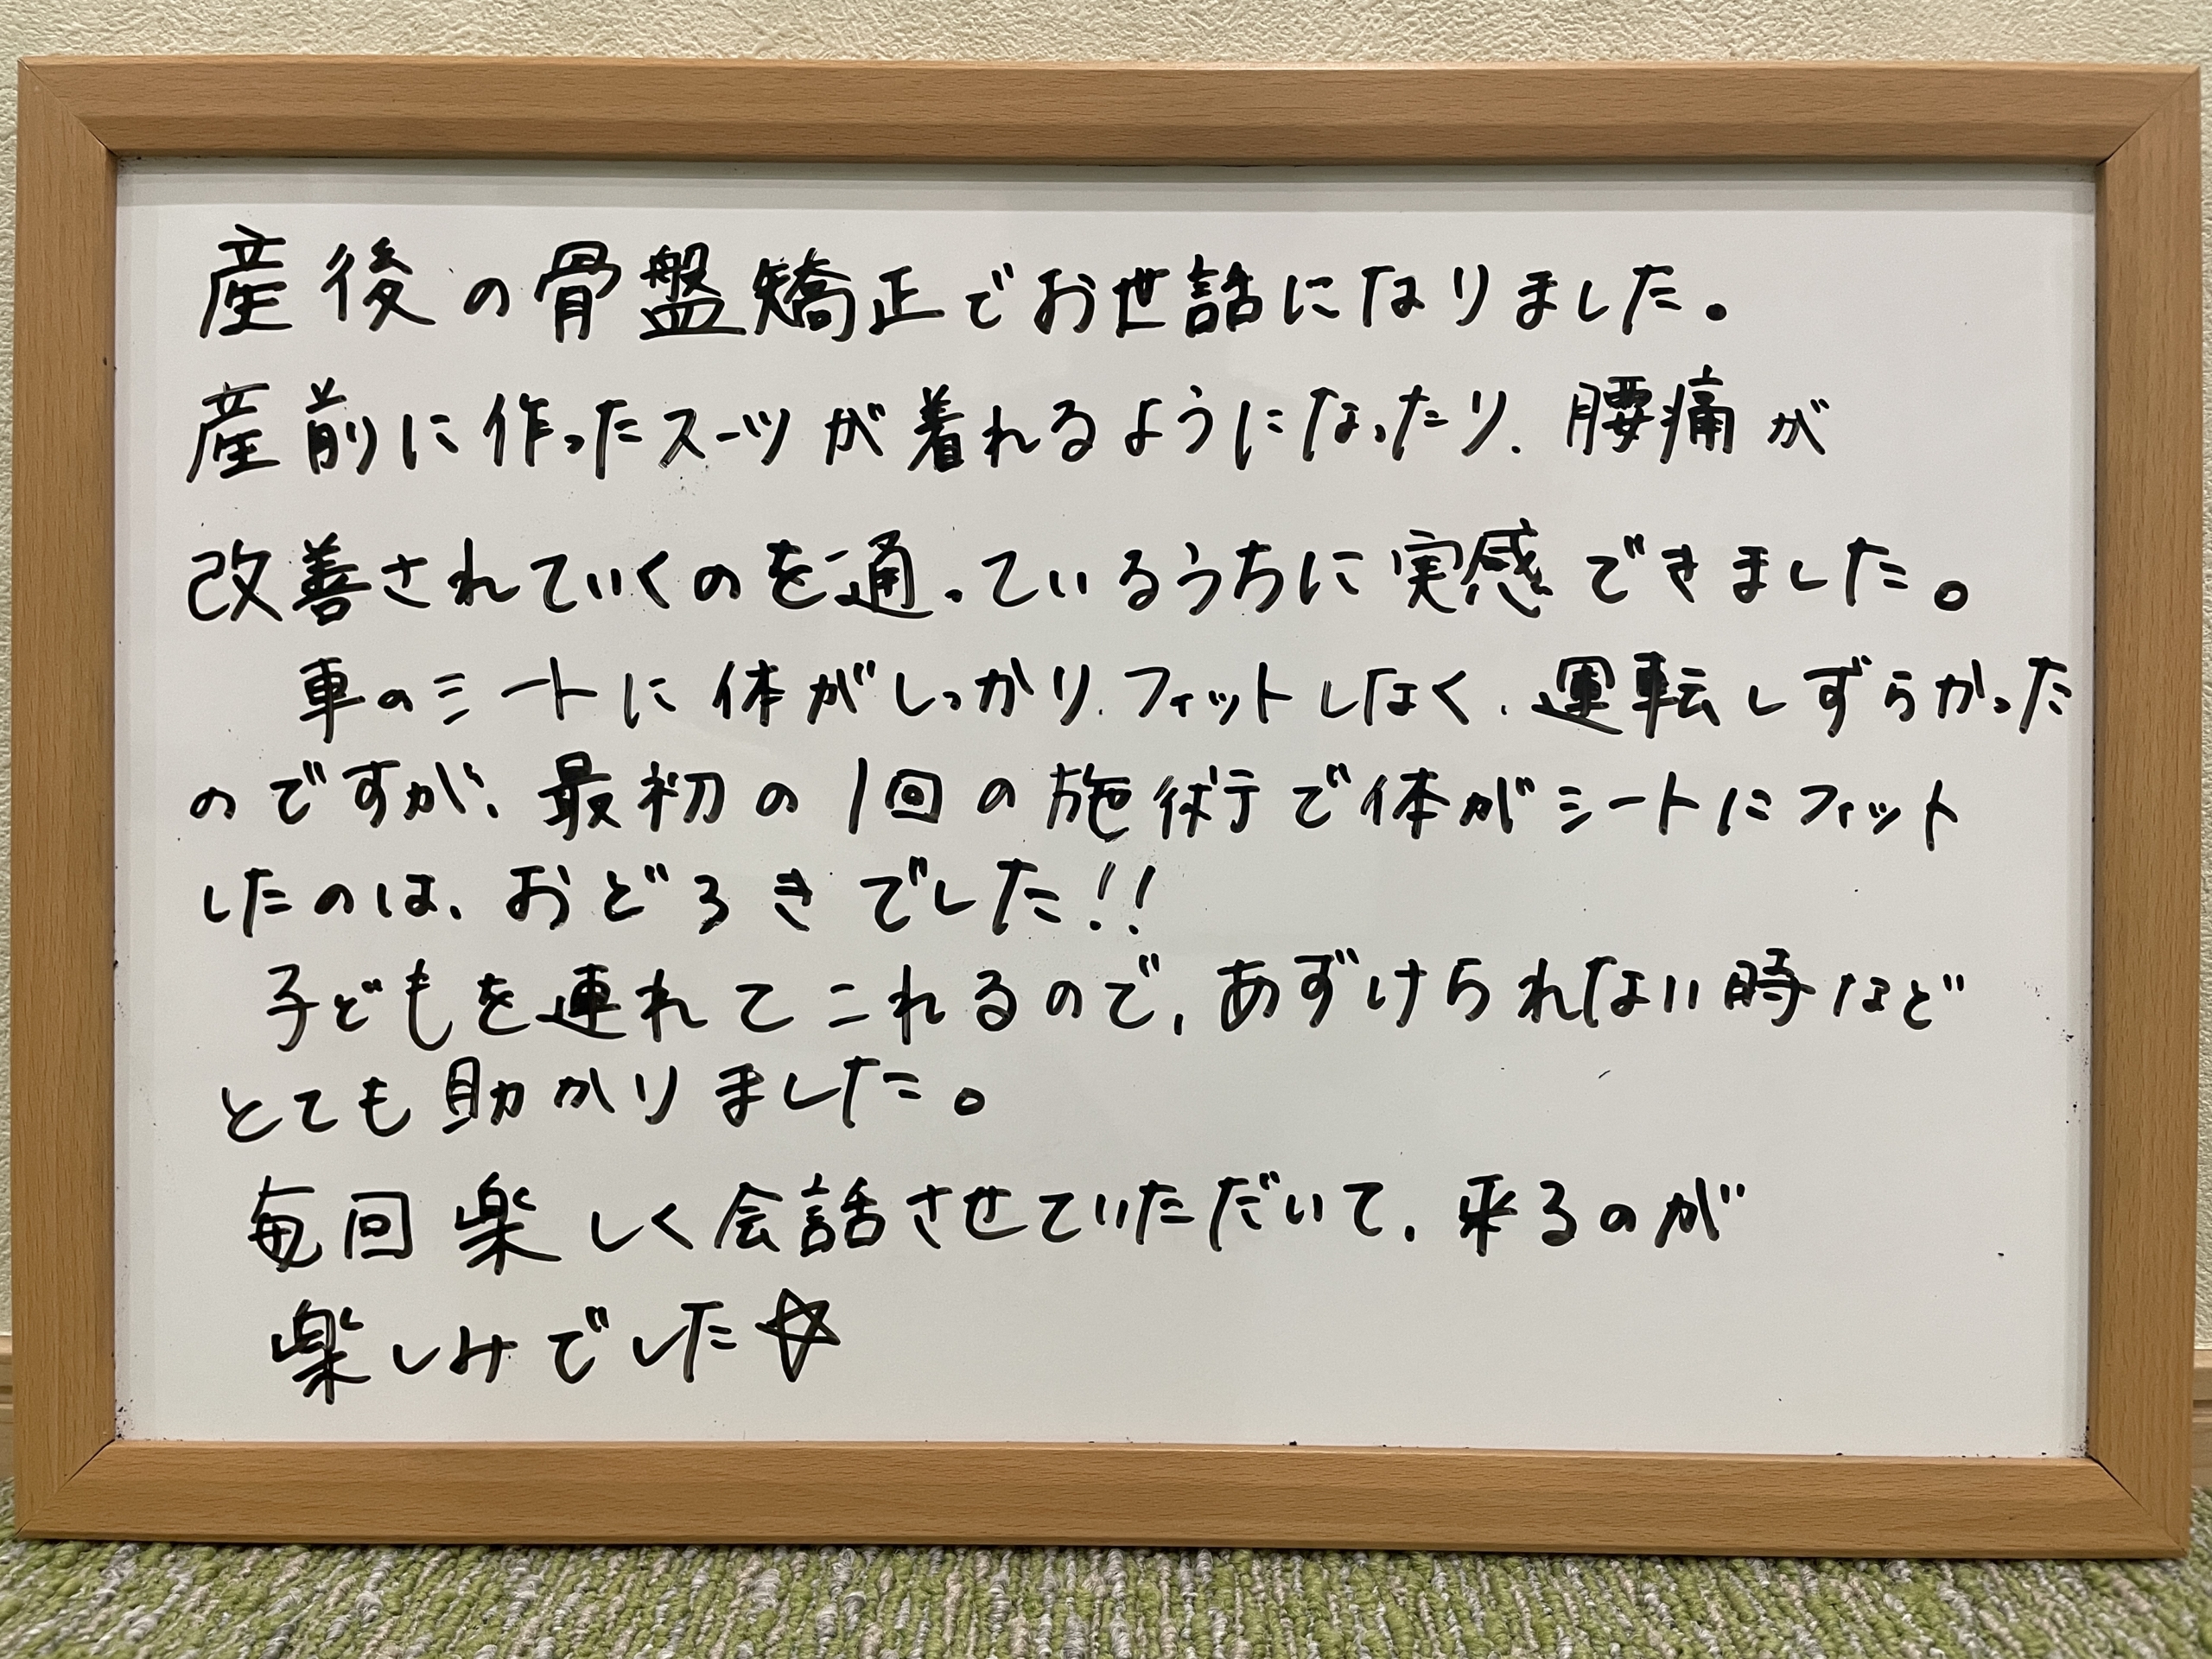 産後の骨盤矯正でお世話になりました。
産前に作ったスーツが着れるようになったり、腰痛が
改善されていくのを通っているうちに実感できました。
車のシートに体がしっかりフィットしなく、運転しずらかった
のですが、最初の1回の施術で体がシートにフィット
したのは、おどろきでした!!
子どもを連れてこれるので、あずけられない時など
とても助かりました。
毎回楽しく会話させていただいて、来るのが
楽しみでした☆